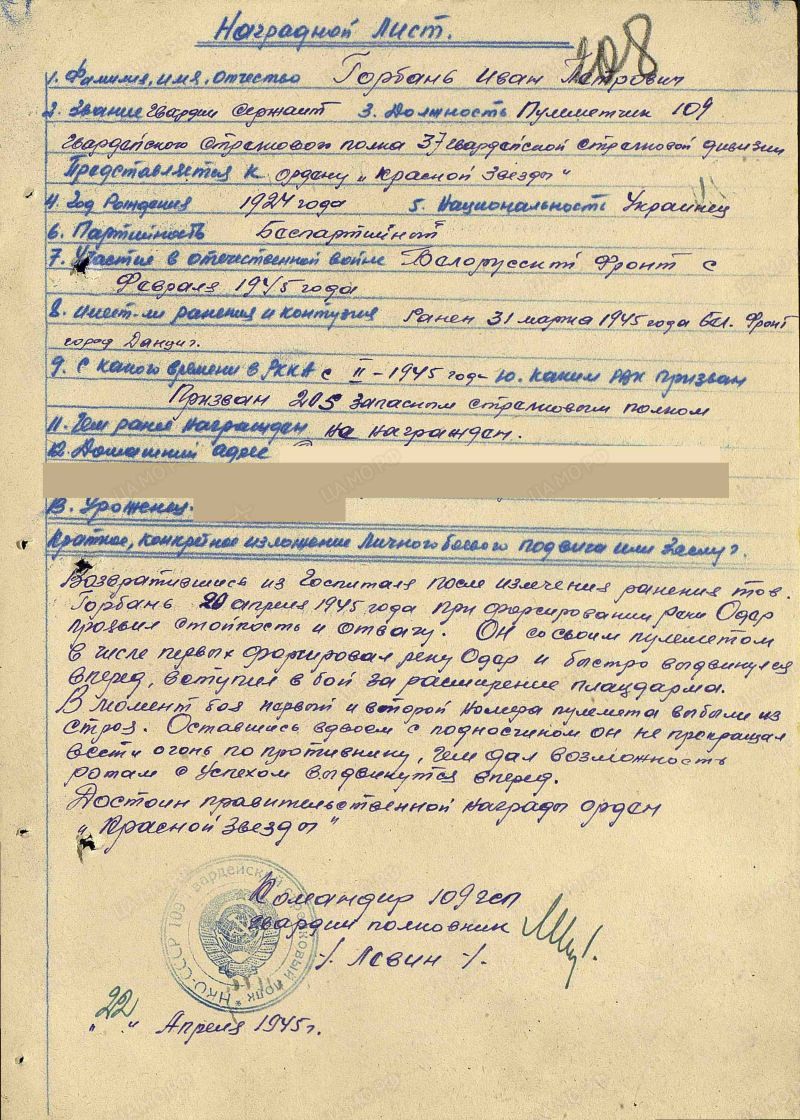 Наградной Лист.
208
1. Фамилия, имя, отчество Горбань Иван Петрович
2. Звание Гвардии Сержант 3. Должность Пулеметчик 109
Гвардейского стрелкового полка 37 Гвардейской стрелковой дивизии
Представляется к ордену „Красной Звезды"
4. Год Рождения 1924 года 5. Национальность Украинец
6. Партийность Беспартийный
7. Участие в отечественной войне Белорусский Фронт с
Февраля 1945 года
8. Имеет-ли ранения и контузия Ранен 31 марта 1945 года Бел. Фронт
город Данциг.
9. С какого времени в РККА с II-1945 года 10. Каким РВК призван
Призван 205 запасным стрелковым полком
11. Чем ранее награжден не награжден.
12. Домашний адрес
13. Урожени.
Краткое, конкретное изложение Личного боевого подвига или Заслуг.
Возвратившись из Госпиталя после излечения ранения тов.
Горбань 20 апреля 1945 года при форсировании реки Одер
проявил стойкость и отвагу. Он со своим пулеметом
в числе первых форсировал реку Одер и быстро выдвинулся
вперед, вступил в бой за расширение плацдарма.
В момент боя первый и второй номера пулемета выбыли из
строя. Оставшись вдвоем с подносчиком он не прекращал
вести огонь по противнику, чем дал возможность
ротам с успехом выдвинутся вперед.
Достоин правительственной награды орден
„Красной Звезды"
Командир 109 гсп
гвардии полковник
/. Левин ./.
НКО-СССР 109 гвардейский стрелковый полк
„22" Апреля 1945г.
ЦАМО РФ